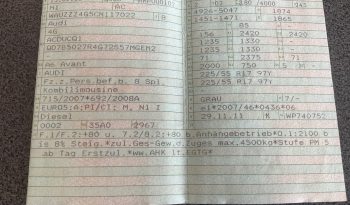 M1 AC
WAUZZZ4G5CN117022
Audi
4G
ACDUCQ1
QD7B5D27R4G72557MGEM2
A6 Avant
AUDI
Fz.z.Pers.bef.b. 8 Spl.
Kombilimousine
715/2007*692/2008A
EURO5;G;PI/CI; M, N1 I
Diesel
0002 35A0 2967
180 / 4000
1926-5047 1874
1451-1471 1865
156 2420
85 2420
1235 1330
1235 1330
71 2375 71
2000 750 5
225/55 R17 97Y
225/55 R17 97Y
GRAU 7/-
e1*2007/46*0436*06
29.11.11 K WP740752
F.1/F.2:+80 u. 7.2/8.2:+80 b.Anhängebetrieb*O.1:2100 b
is 8% Steig.*zul.Ges-Gew.d.Zuges max.4500kg*Stufe PM 5
ab Tag Erstzul.*ww.AHK lt.EGTG*